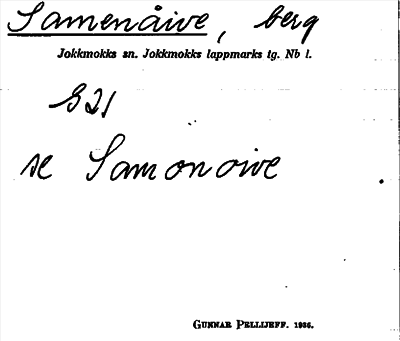 Samenåive, berg
Jokkmokks sn. Jokkmokks lappmarks tg. Nb l.
S21
se Samonoive
GUNNAR PELLIJEFF. 1936.